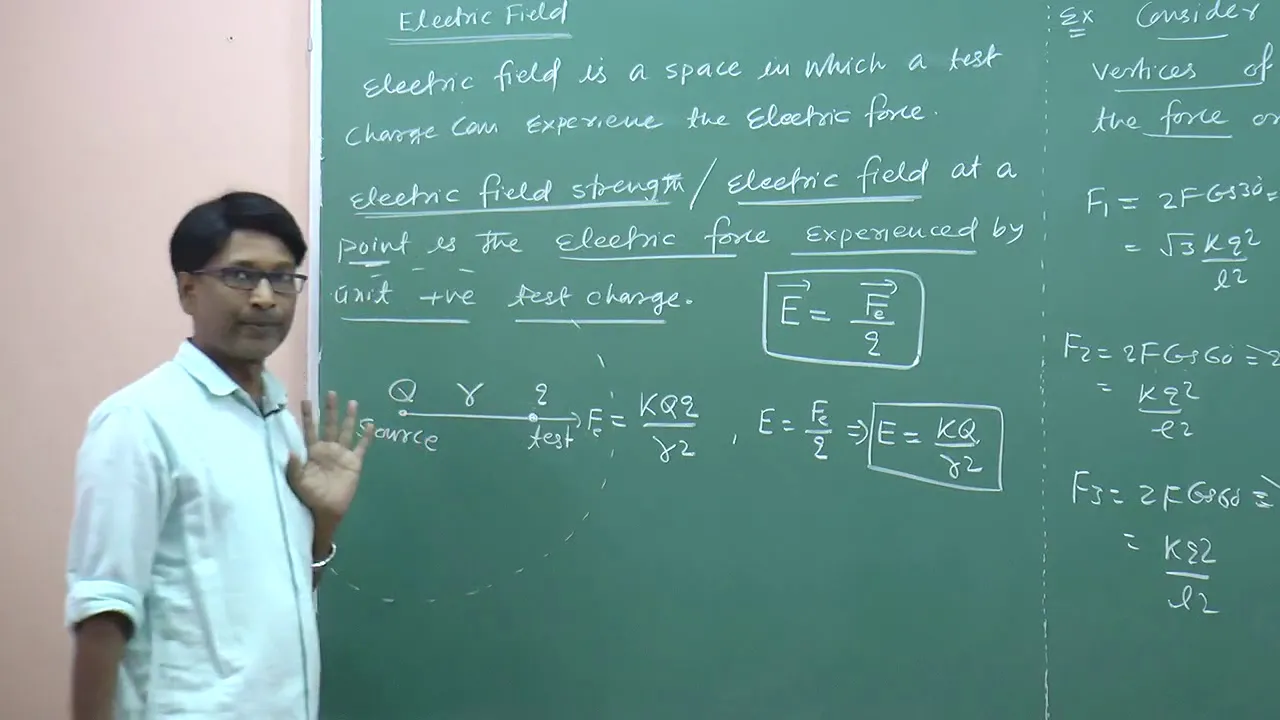 Electric Field
Electric field is a space in which a test
charge can experience the Electric force.
Electric field strength / Electric field at a
point is the Electric force experienced by
unit +ve test charge.
E⃗ = F⃗e/q
Q r q
source test Fe = KQq/r2 , E = Fe/q ⇒ E = KQ/r2
Ex Consider
vertices of
the force on
F1 = 2F Cos30 =
= √3 Kq2/l2
F2 = 2F Cos60 =
= Kq2/l2
F3 = 2F Cos60 =
= Kq2/l2